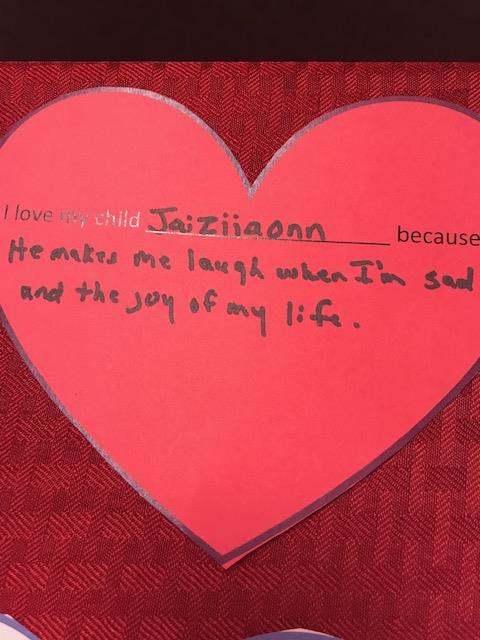 I love my child Jaiziiaonn because
He makes me laugh when I'm sad
and the joy of my life.